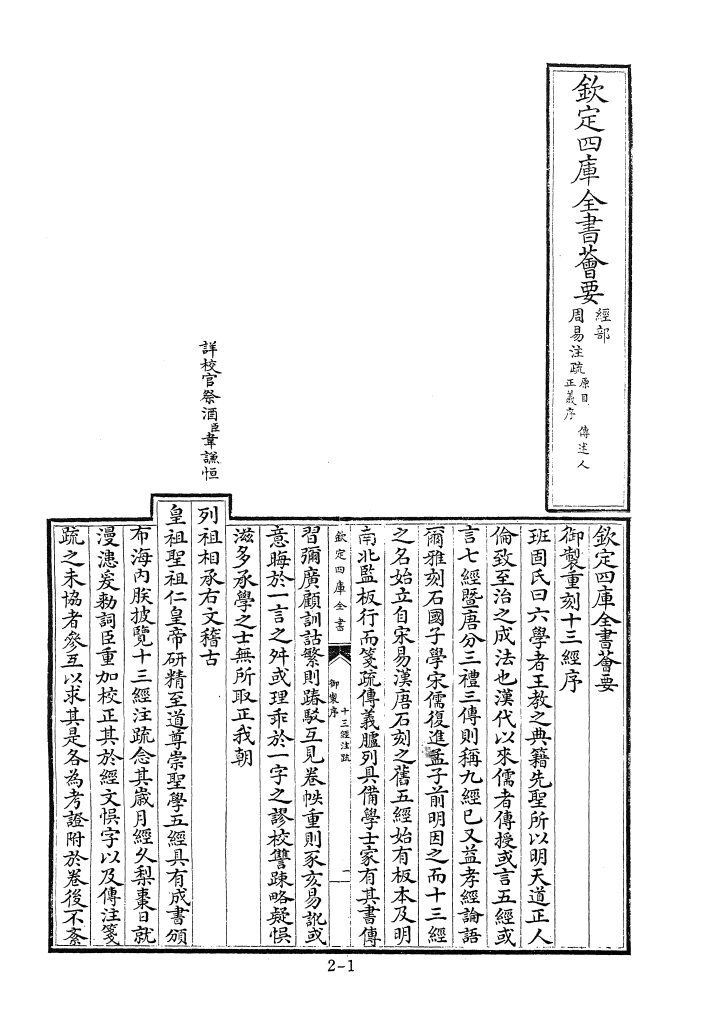 欽定四庫全書薈要
經部
周易注疏
原目 傳述人
正義序
詳校官祭酒臣韋謙恒
欽定四庫全書薈要
御製重刻十三經序
班固氏曰六學者王教之典籍先聖所以明天道正人
倫致至治之成法也漢代以來儒者傳授或言五經或
言七經暨唐分三禮三傳則稱九經已又益孝經論語
爾雅刻石國子學宋儒復進孟子前明因之而十三經
之名始立自宋易漢唐石刻之舊五經始有板本及明
南北監板行而箋疏傳義臚列具備學士家有其書傳
欽定四庫全書
十三經注疏
御製序
一
習彌廣顧訓詁繁則踳駁互見卷帙重則豕亥易訛或
意晦於一言之舛或理乖於一字之謬校讐疎略疑悞
滋多承學之士無所取正我朝
列祖相承右文稽古
皇祖聖祖仁皇帝研精至道尊崇聖學五經具有成書頒
布海內朕披覽十三經注疏念其歲月經久梨棗日就
漫漶爰勅詞臣重加校正其於經文悞字以及傳注箋
疏之未協者參互以求其是各為考證附於卷後不紊
2-1